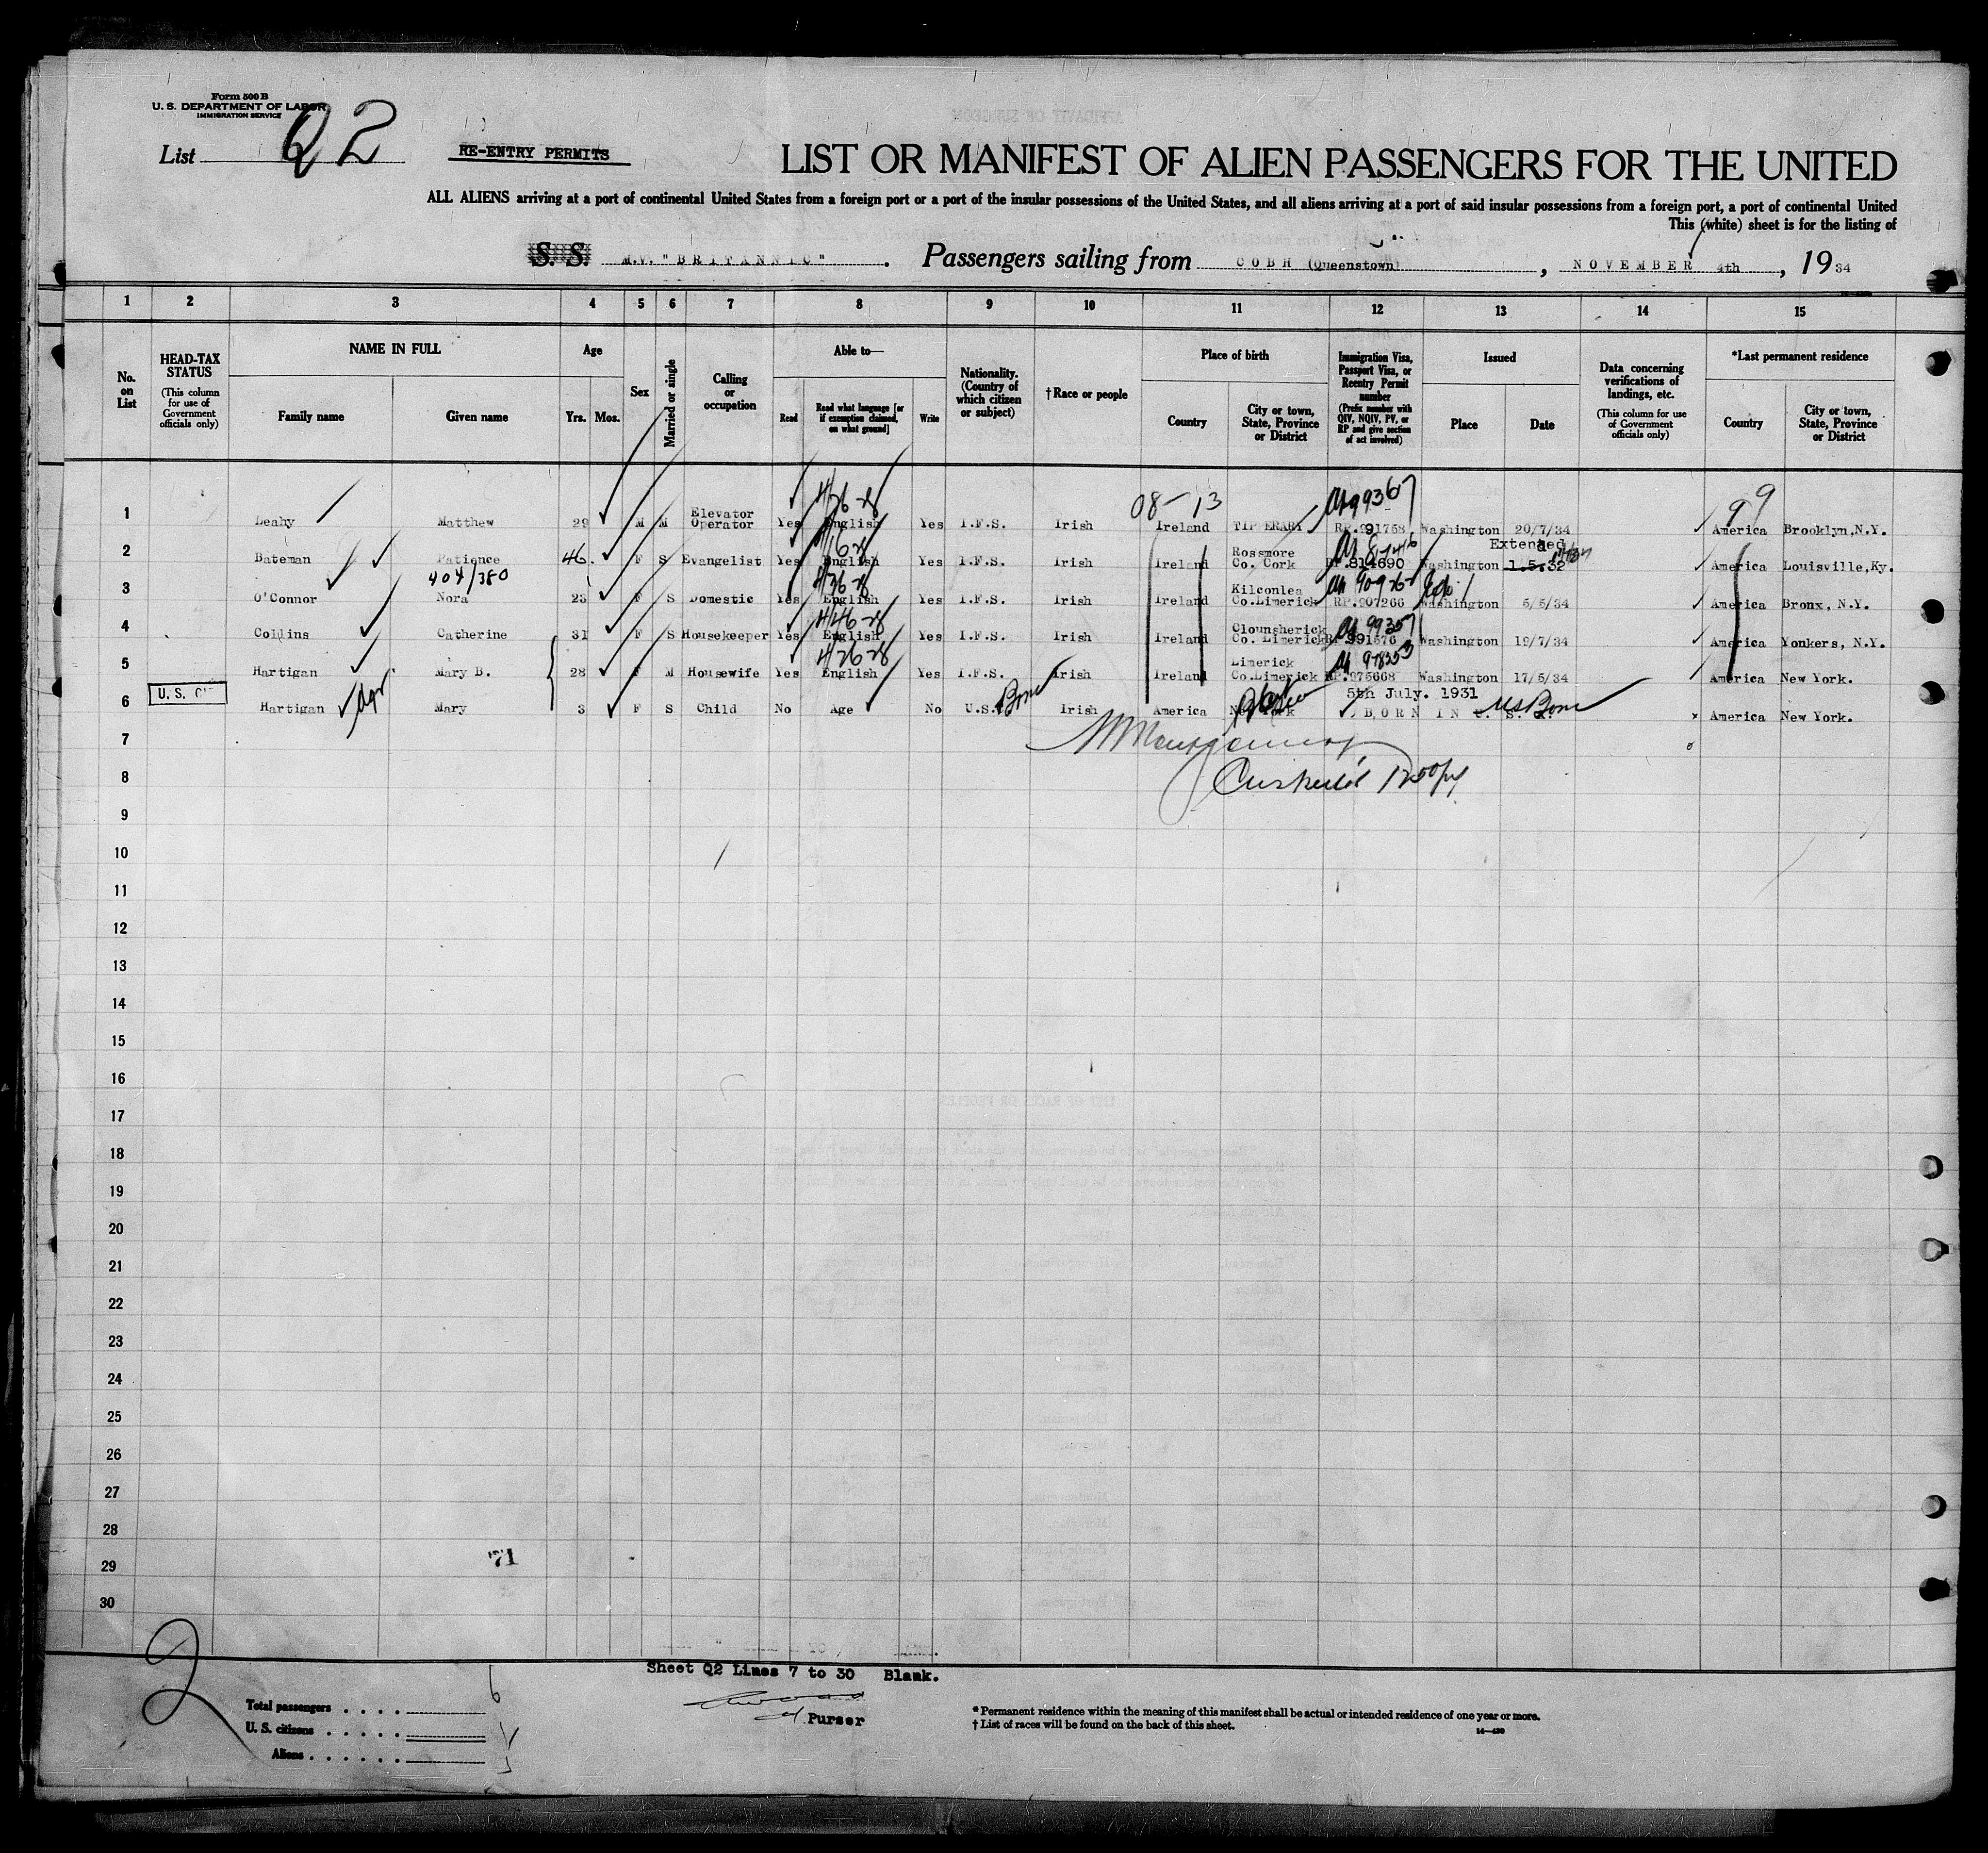 Form 500 B
U. S. DEPARTMENT OF LABOR
IMMIGRATION SERVICE
List Q2
RE-ENTRY PERMITS
LIST OR MANIFEST OF ALIEN PASSENGERS FOR THE UNITED
ALL ALIENS arriving at a port of continental United States from a foreign port or a port of the insular possessions of the United States, and all aliens arriving at a port of said insular possessions from a foreign port, a port of continental United
This (white) sheet is for the listing of
S. S. M.V. "BRITANNIC". Passengers sailing from COBH (Queenstown), NOVEMBER 4th, 1934
1 2 3 4 5 6 7 8 9 10 11 12 13 14 15
No. on List
HEAD-TAX STATUS
(This column for use of Government officials only)
NAME IN FULL
Family name
Given name
Age
Yrs. Mos.
Sex
Married or single
Calling or occupation
Able to—
Read
Read what language [or if exemption claimed, on what ground]
Write
Nationality. (Country of which citizen or subject)
† Race or people
Place of birth
Country
City or town, State, Province or District
Immigration Visa, Passport Visa, or Reentry Permit number
(Prefix number with QIV, NQIV, PV, or RP and give section of act involved)
Issued
Place
Date
Data concerning verifications of landings, etc.
(This column for use of Government officials only)
*Last permanent residence
Country
City or town, State, Province or District
08-13
99
1 Leahy Matthew 29 M M Elevator Operator Yes English Yes I.F.S. Irish Ireland TIPPERARY RP.991758 Washington 20/7/34 America Brooklyn,N.Y.
Extended
2 Bateman Patience 46 F S Evangelist Yes English Yes I.F.S. Irish Ireland Rossmore Co. Cork RP.814690 Washington 1.5.32 America Louisville,Ky.
404/380
3 O'Connor Nora 23 F S Domestic Yes English Yes I.F.S. Irish Ireland Kilconlea Co.Limerick RP.907266 Washington 5/5/34 America Bronx, N.Y.
4 Collins Catherine 31 F S Housekeeper Yes English Yes I.F.S. Irish Ireland Clounsherick Co. Limerick RP.991576 Washington 19/7/34 America Yonkers, N.Y.
5 Hartigan Mary B. 28 F M Housewife Yes English Yes I.F.S. Irish Ireland Limerick Co.Limerick RP.975668 Washington 17/5/34 America New York.
5th July. 1931
6 U. S. Hartigan Mary 3 F S Child No Age No U.S. Born Irish America New York BORN IN U. S. A. US Born America New York.
7
8
9
10
11
12
13
14
15
16
17
18
19
20
21
22
23
24
25
26
27
28
71
29
30
2
Sheet Q2 Lines 7 to 30 Blank.
Purser
Total passengers . . . . 6
U. S. citizens . . . . .
Aliens . . . . . . 5
* Permanent residence within the meaning of this manifest shall be actual or intended residence of one year or more.
† List of races will be found on the back of this sheet.
14—430